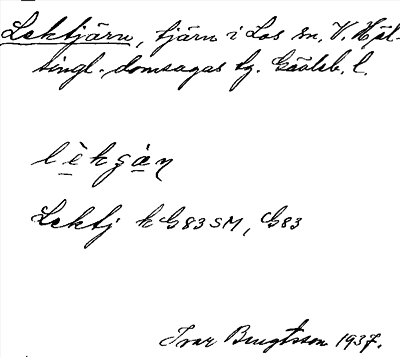 Lektjärn, tjärn i Los sn. V. Häl-
singl. domsagas tg. Gävleb. l.
lèkgàn
Lektj k G83SM, G83
Ivar Bengtsson 1937.